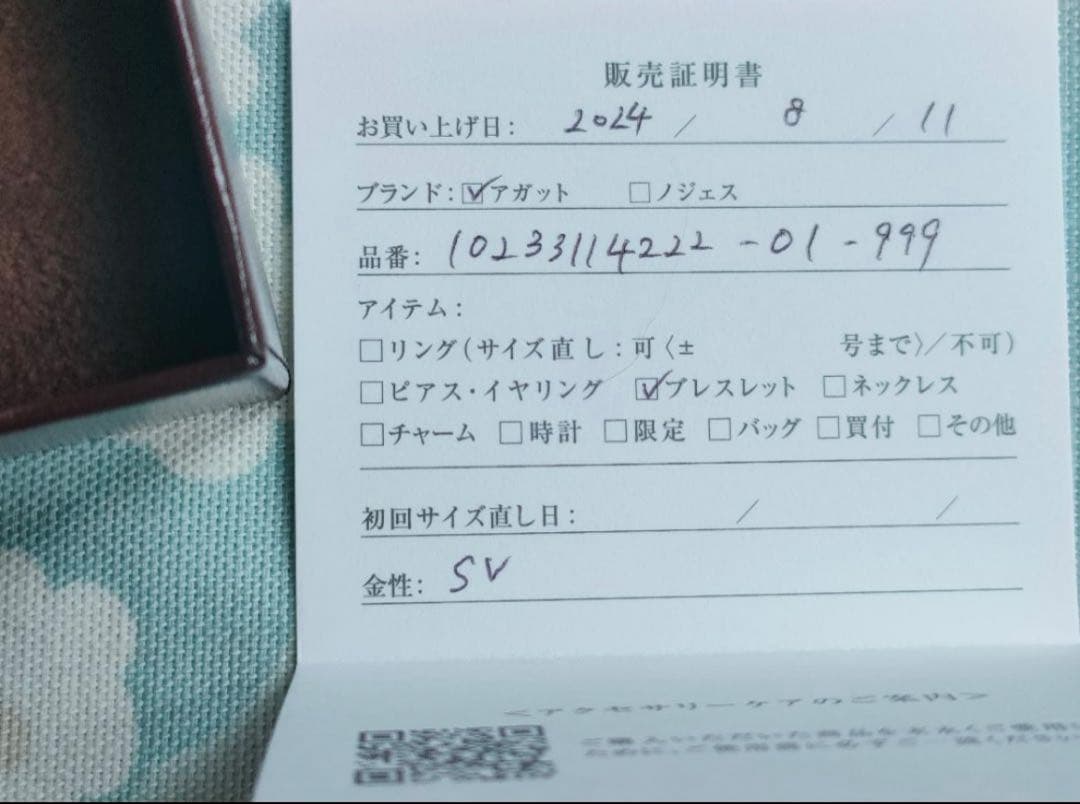 販売証明書
お買い上げ日: 2024 / 8 / 11
ブランド: ☑アガット □ノジェス
品番: 10233114222 - 01 - 999
アイテム:
□リング(サイズ直し:可〈± 号まで〉/不可)
□ピアス・イヤリング ☑ブレスレット □ネックレス
□チャーム □時計 □限定 □バッグ □買付 □その他
初回サイズ直し日: / /
金性: SV
<アクセサリーケアのご案内>